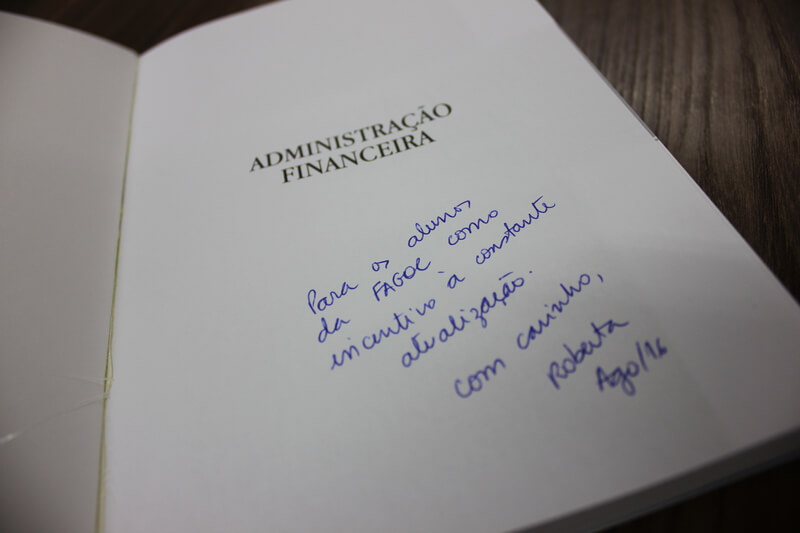 ADMINISTRAÇÃO
FINANCEIRA
Para os alunos
da FAGOC como
incentivo à constante
atualização.
com carinho,
Roberta
Ago/16